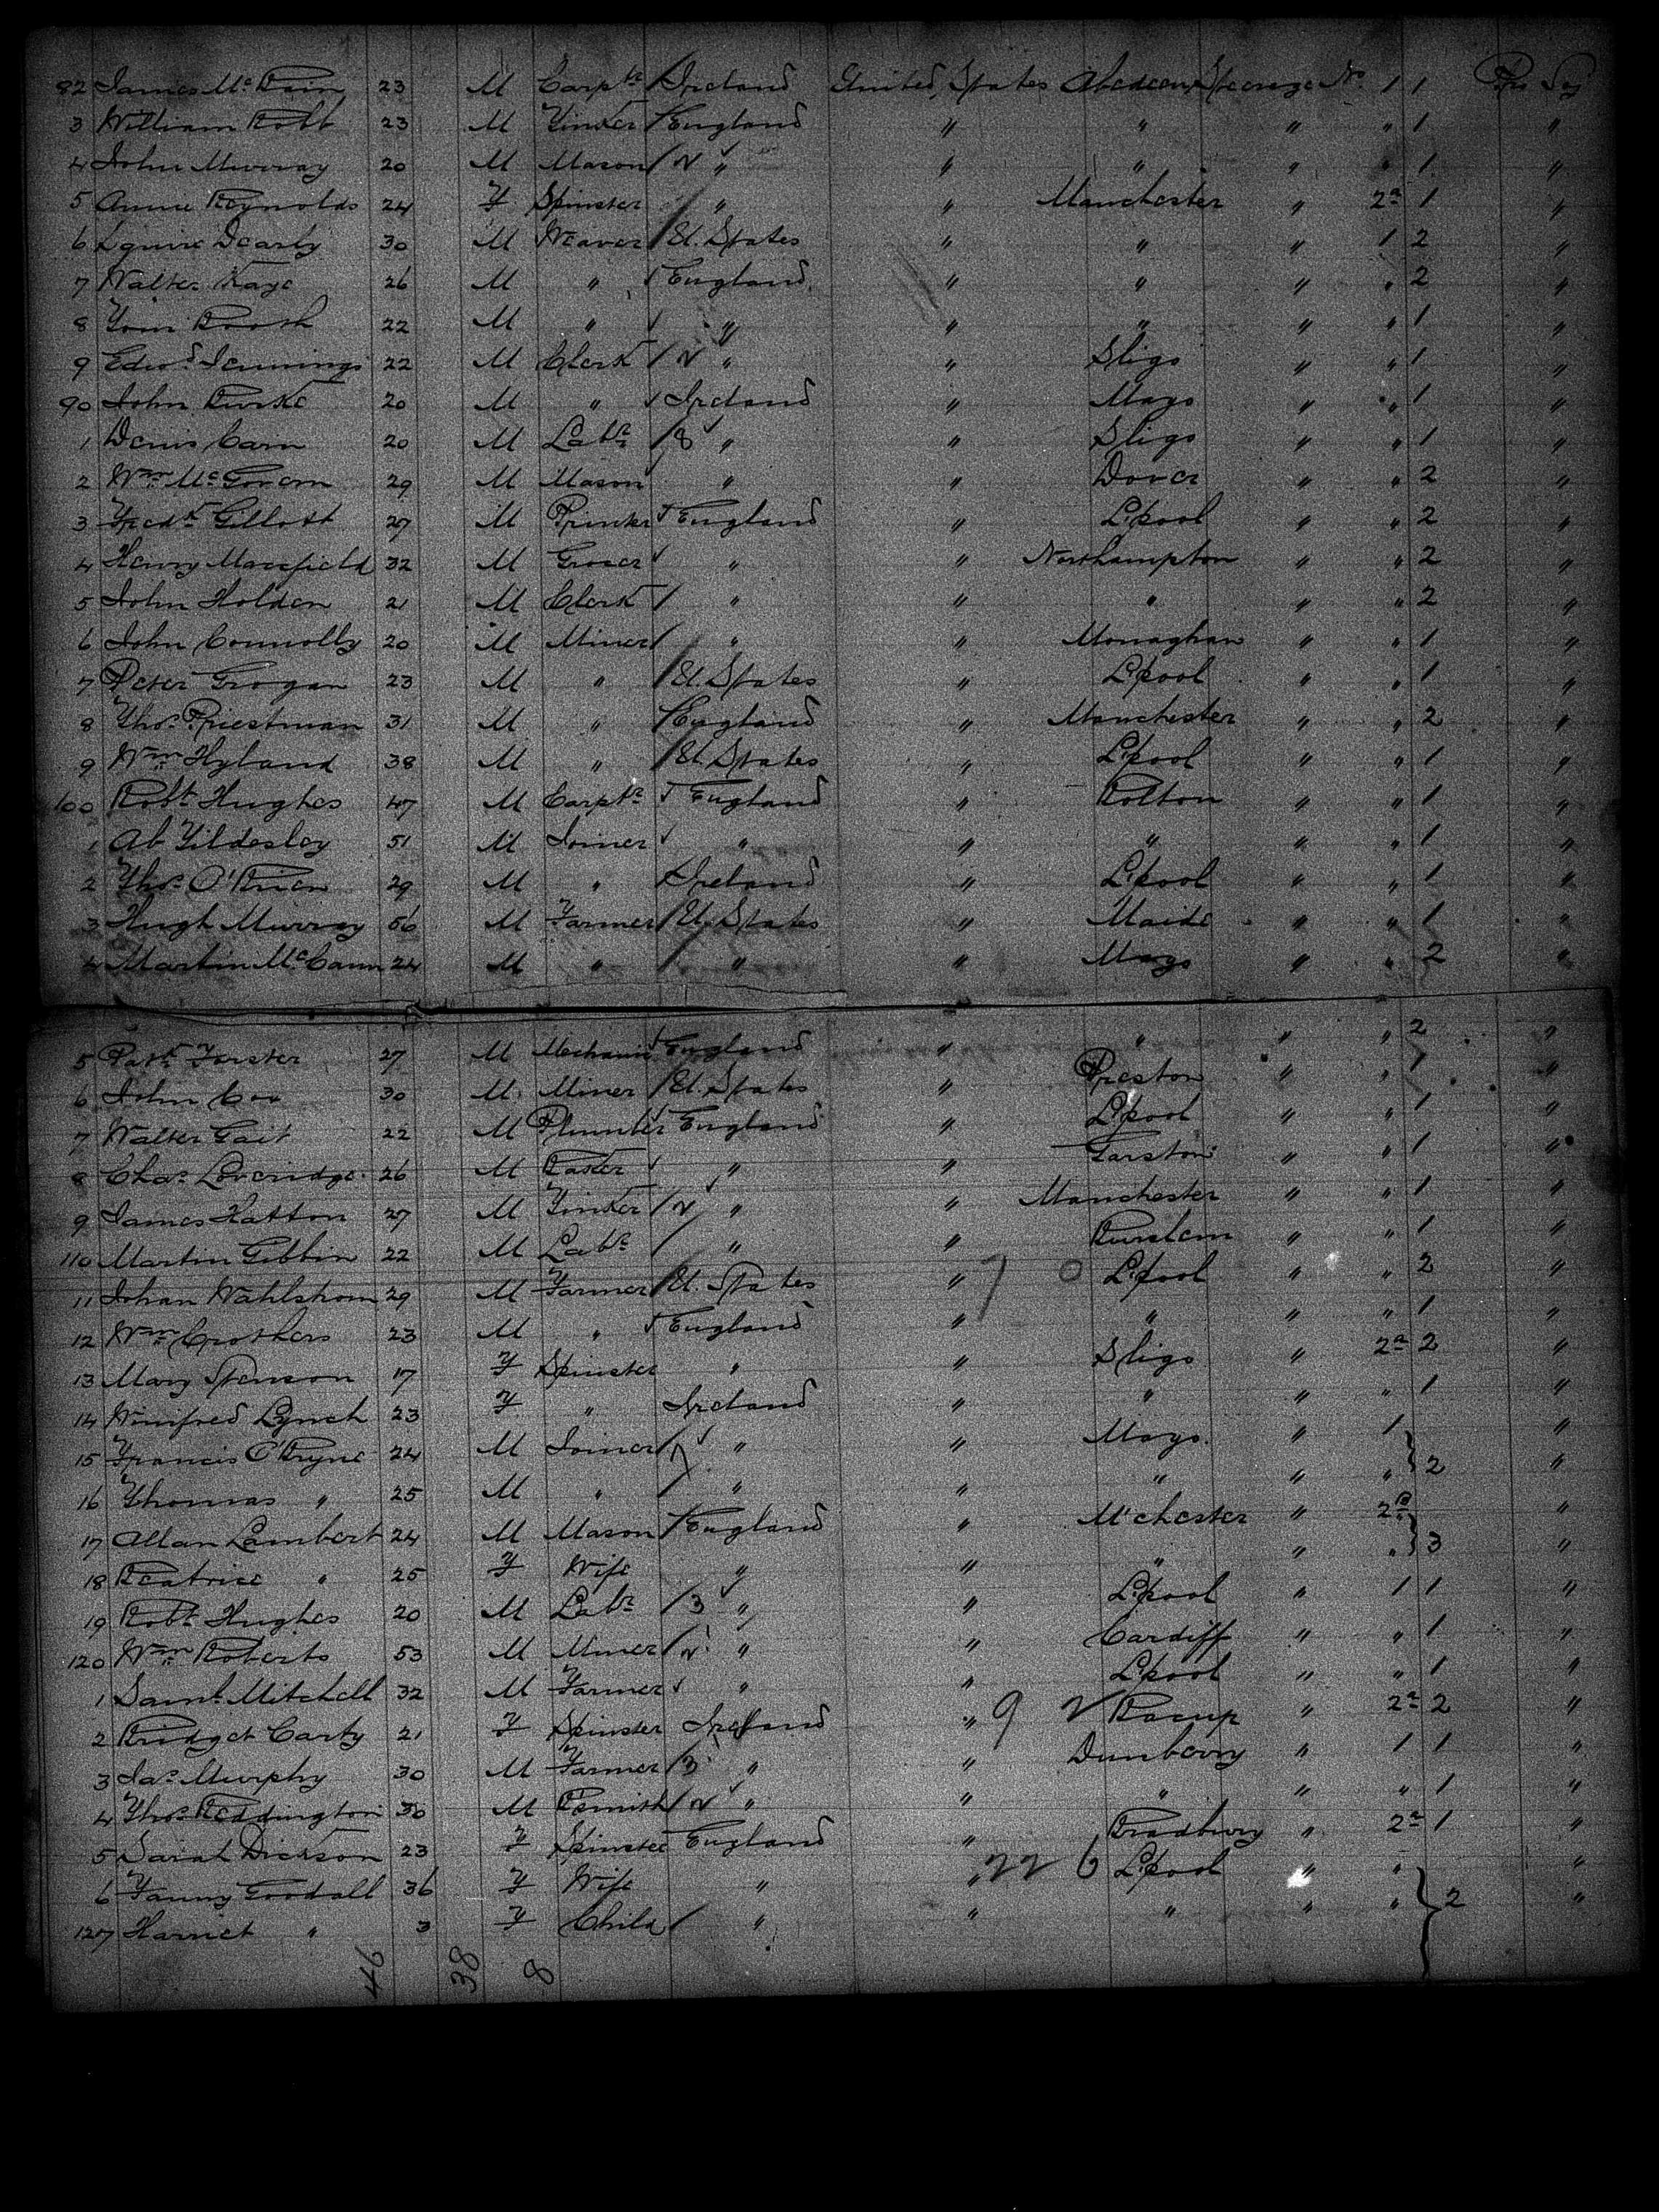 82 James McBain 23 M Carptr Ireland United States Aberdeen Steerage No. 1 1 Pro Soj
3 William Robb 23 M Tinker England " " " " 1 "
4 John Murray 20 M Mason " " " " " 1 "
5 Annie Reynolds 24 F Spinster " " Manchester " 2a 1 "
6 Squire Dearly 30 M Weaver U. States " " " 1 2 "
7 Walter Kaye 26 M " England " " " " 2 "
8 Tom Booth 22 M " " " " " " 1 "
9 Edwd Jennings 22 M Clerk " " Sligo " " 1 "
90 John Burke 20 M " Ireland " Mayo " " 1 "
1 Denis Carn 20 M Labr 8 " " Sligo " " 1 "
2 Wm McGovern 29 M Mason " " Dover " " 2 "
3 Fredk Gillott 27 M Printer England " L'pool " " 2 "
4 Henry Macefield 32 M Grocer " " Northampton " " 2 "
5 John Holden 21 M Clerk " " " " " 2 "
6 John Connolly 20 M Miner " " Monaghan " " 1 "
7 Peter Grogan 23 M " U. States " L'pool " " 1 "
8 Thos Priestman 31 M " England " Manchester " " 2 "
9 Wm Hyland 38 M " U. States " L'pool " " 1 "
100 Robt Hughes 47 M Carptr England " Bolton " " 1 "
1 Ab Tildesley 51 M Joiner " " " " " 1 "
2 Thos O'Brien 29 M " Ireland " L'pool " " 1 "
3 Hugh Murray 56 M Farmer U. States " " " 1 "
4 Martin McCann 24 M " " " Mayo " " 2 "
5 Patk Forster 27 M Mechanic England " " " " 2 "
6 John Cox 30 M Miner U. States " Preston " " 1 "
7 Walter Gait 22 M Plumber England " L'pool " " 1 "
8 Chas Loveridge 26 M Baker " " Garston " 1 "
9 James Hatton 27 M Tinker " " Manchester " " 1 "
110 Martin Gibbin 22 M Labr " " Burslem " " 1 "
11 Johan Wahlstrom 29 M Farmer U. States " 7 0 L'pool " " 2 "
12 Wm Crothers 23 M " England " " " " 1 "
13 Mary Stenson 17 F Spinster " " Sligo " 2a 2 "
14 Winifred Lynch 23 F " Ireland " " " " 1 "
15 Francis O'Bryne 24 M Joiner " " Mayo " 1 "
16 Thomas " 25 M " " " " " " 2 "
17 Allan Lambert 24 M Mason England " M'chester " 2a "
18 Beatrice " 25 F Wife " " " " " 3 "
19 Robt Hughes 20 M Labr 3 " " L'pool " 1 1 "
120 Wm Roberts 53 M Miner " " Cardiff " " 1 "
1 Saml Mitchell 32 M Farmer " " L'pool " " 1 "
2 Bridget Carty 21 F Spinster Ireland " 9 Bacup " 2a 2 "
3 Jas Murphy 30 M Farmer 3 " " Dunberry " 1 1 "
4 Thos Reddington 30 M " " " " " 1 "
5 Sarah Dickson 23 F Spinster England " Bradbury " 2a 1 "
6 Fanny Goodall 36 F Wife " " 22 6 L'pool " " "
127 Harriet " 3 F Child " " " " " 2 "
46 38 8